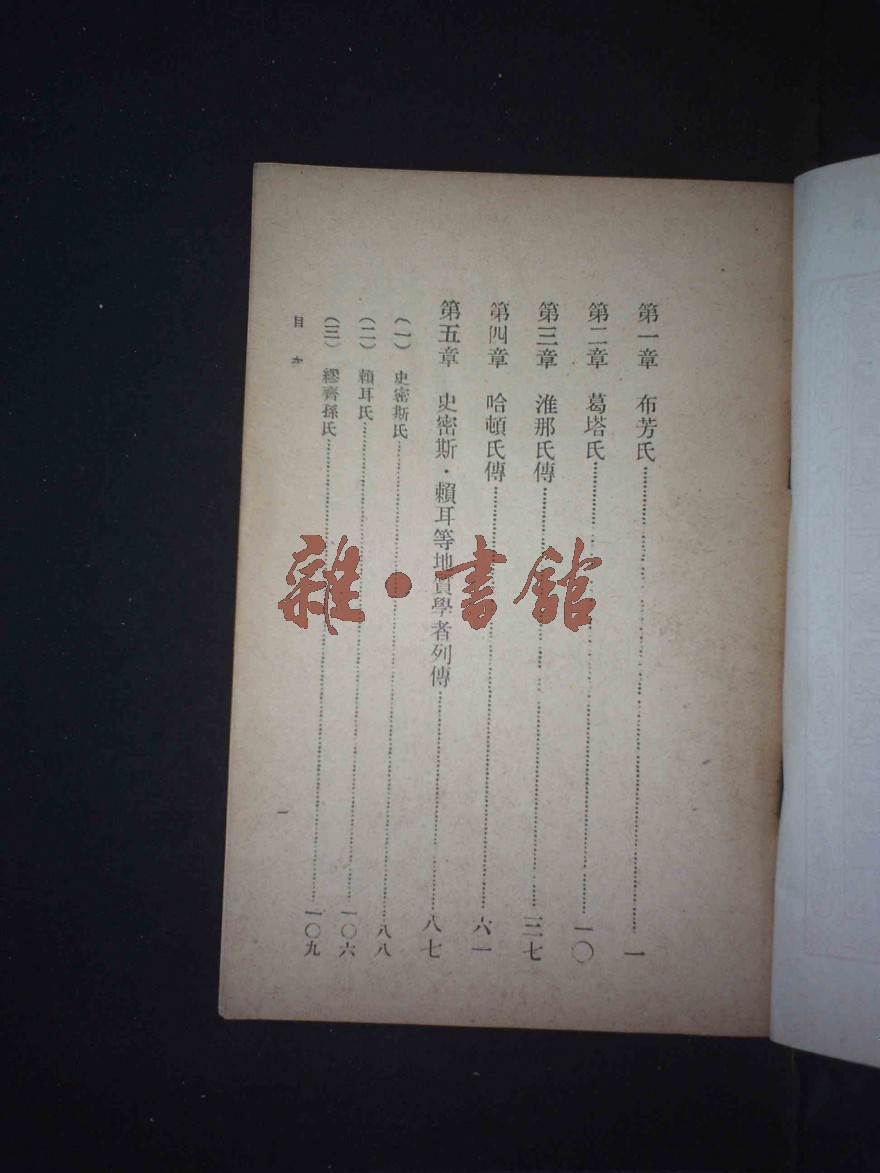 第一章 布芳氏……一
第二章 葛塔氏……一〇
第三章 淮那氏傳……三七
第四章 哈頓氏傳……六一
第五章 史密斯・賴耳等地質學者列傳……八七
(一) 史密斯氏……八八
(二) 賴耳氏……一〇六
(三) 繆齊孫氏……一〇九
目次
一
雜・書館